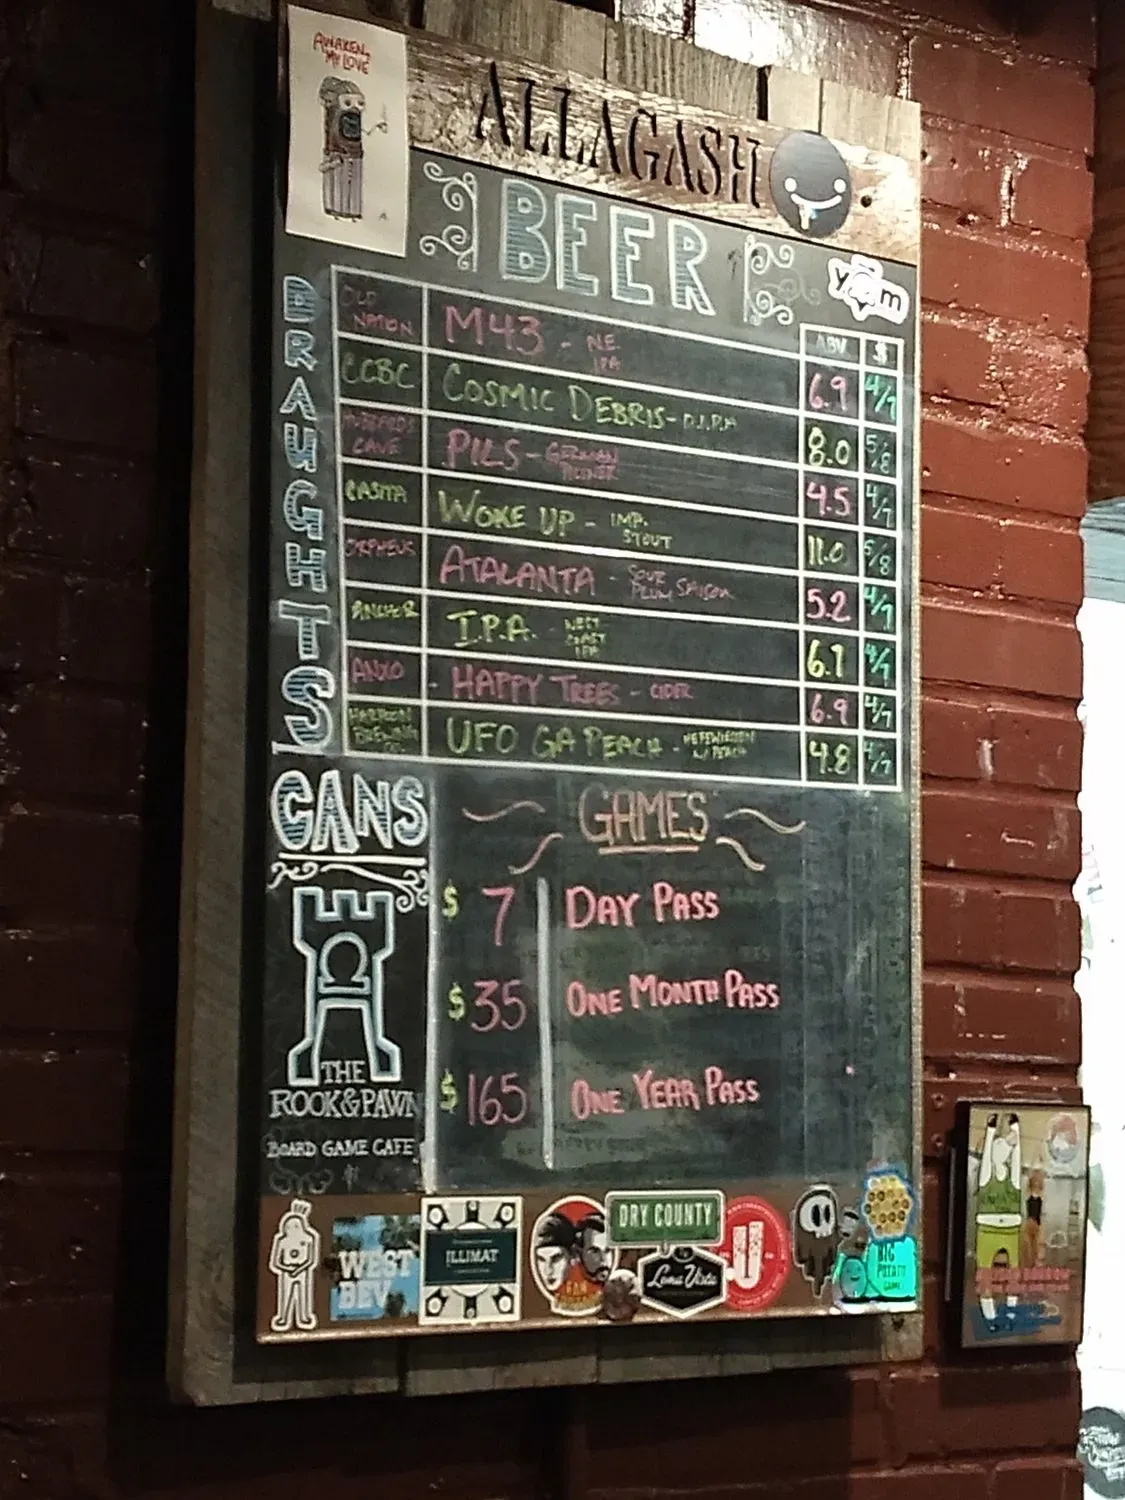 AWAKEN,
MY LOVE
ALLAGASH
BEER
DRAUGHTS
ABV $
OLD NATION M43 - N.E. IPA 6.9 4/7
CCBC COSMIC DEBRIS - D.I.P.A 8.0 5/8
CAVE PILS - GERMAN PILSNER 4.5 4/7
CASITA WOKE UP - IMP. STOUT 11.0 5/8
ORPHEUS ATALANTA - SOUR PLUM SAISON 5.2 4/7
I.P.A. - WEST COAST IPA 6.7 4/7
ANXO - HAPPY TREES - CIDER 6.9 4/7
HARPOON BREWING CO. UFO GA PEACH - HEFEWEIZEN W/ PEACH 4.8 4/7
CANS
GAMES
$ 7 DAY PASS
$ 35 ONE MONTH PASS
$ 165 ONE YEAR PASS
THE
ROOK & PAWN
BOARD GAME CAFE
WEST
BEV
ILLIMAT
DRY COUNTY
Luna Vista
U
BIG
POTATO
GAMES